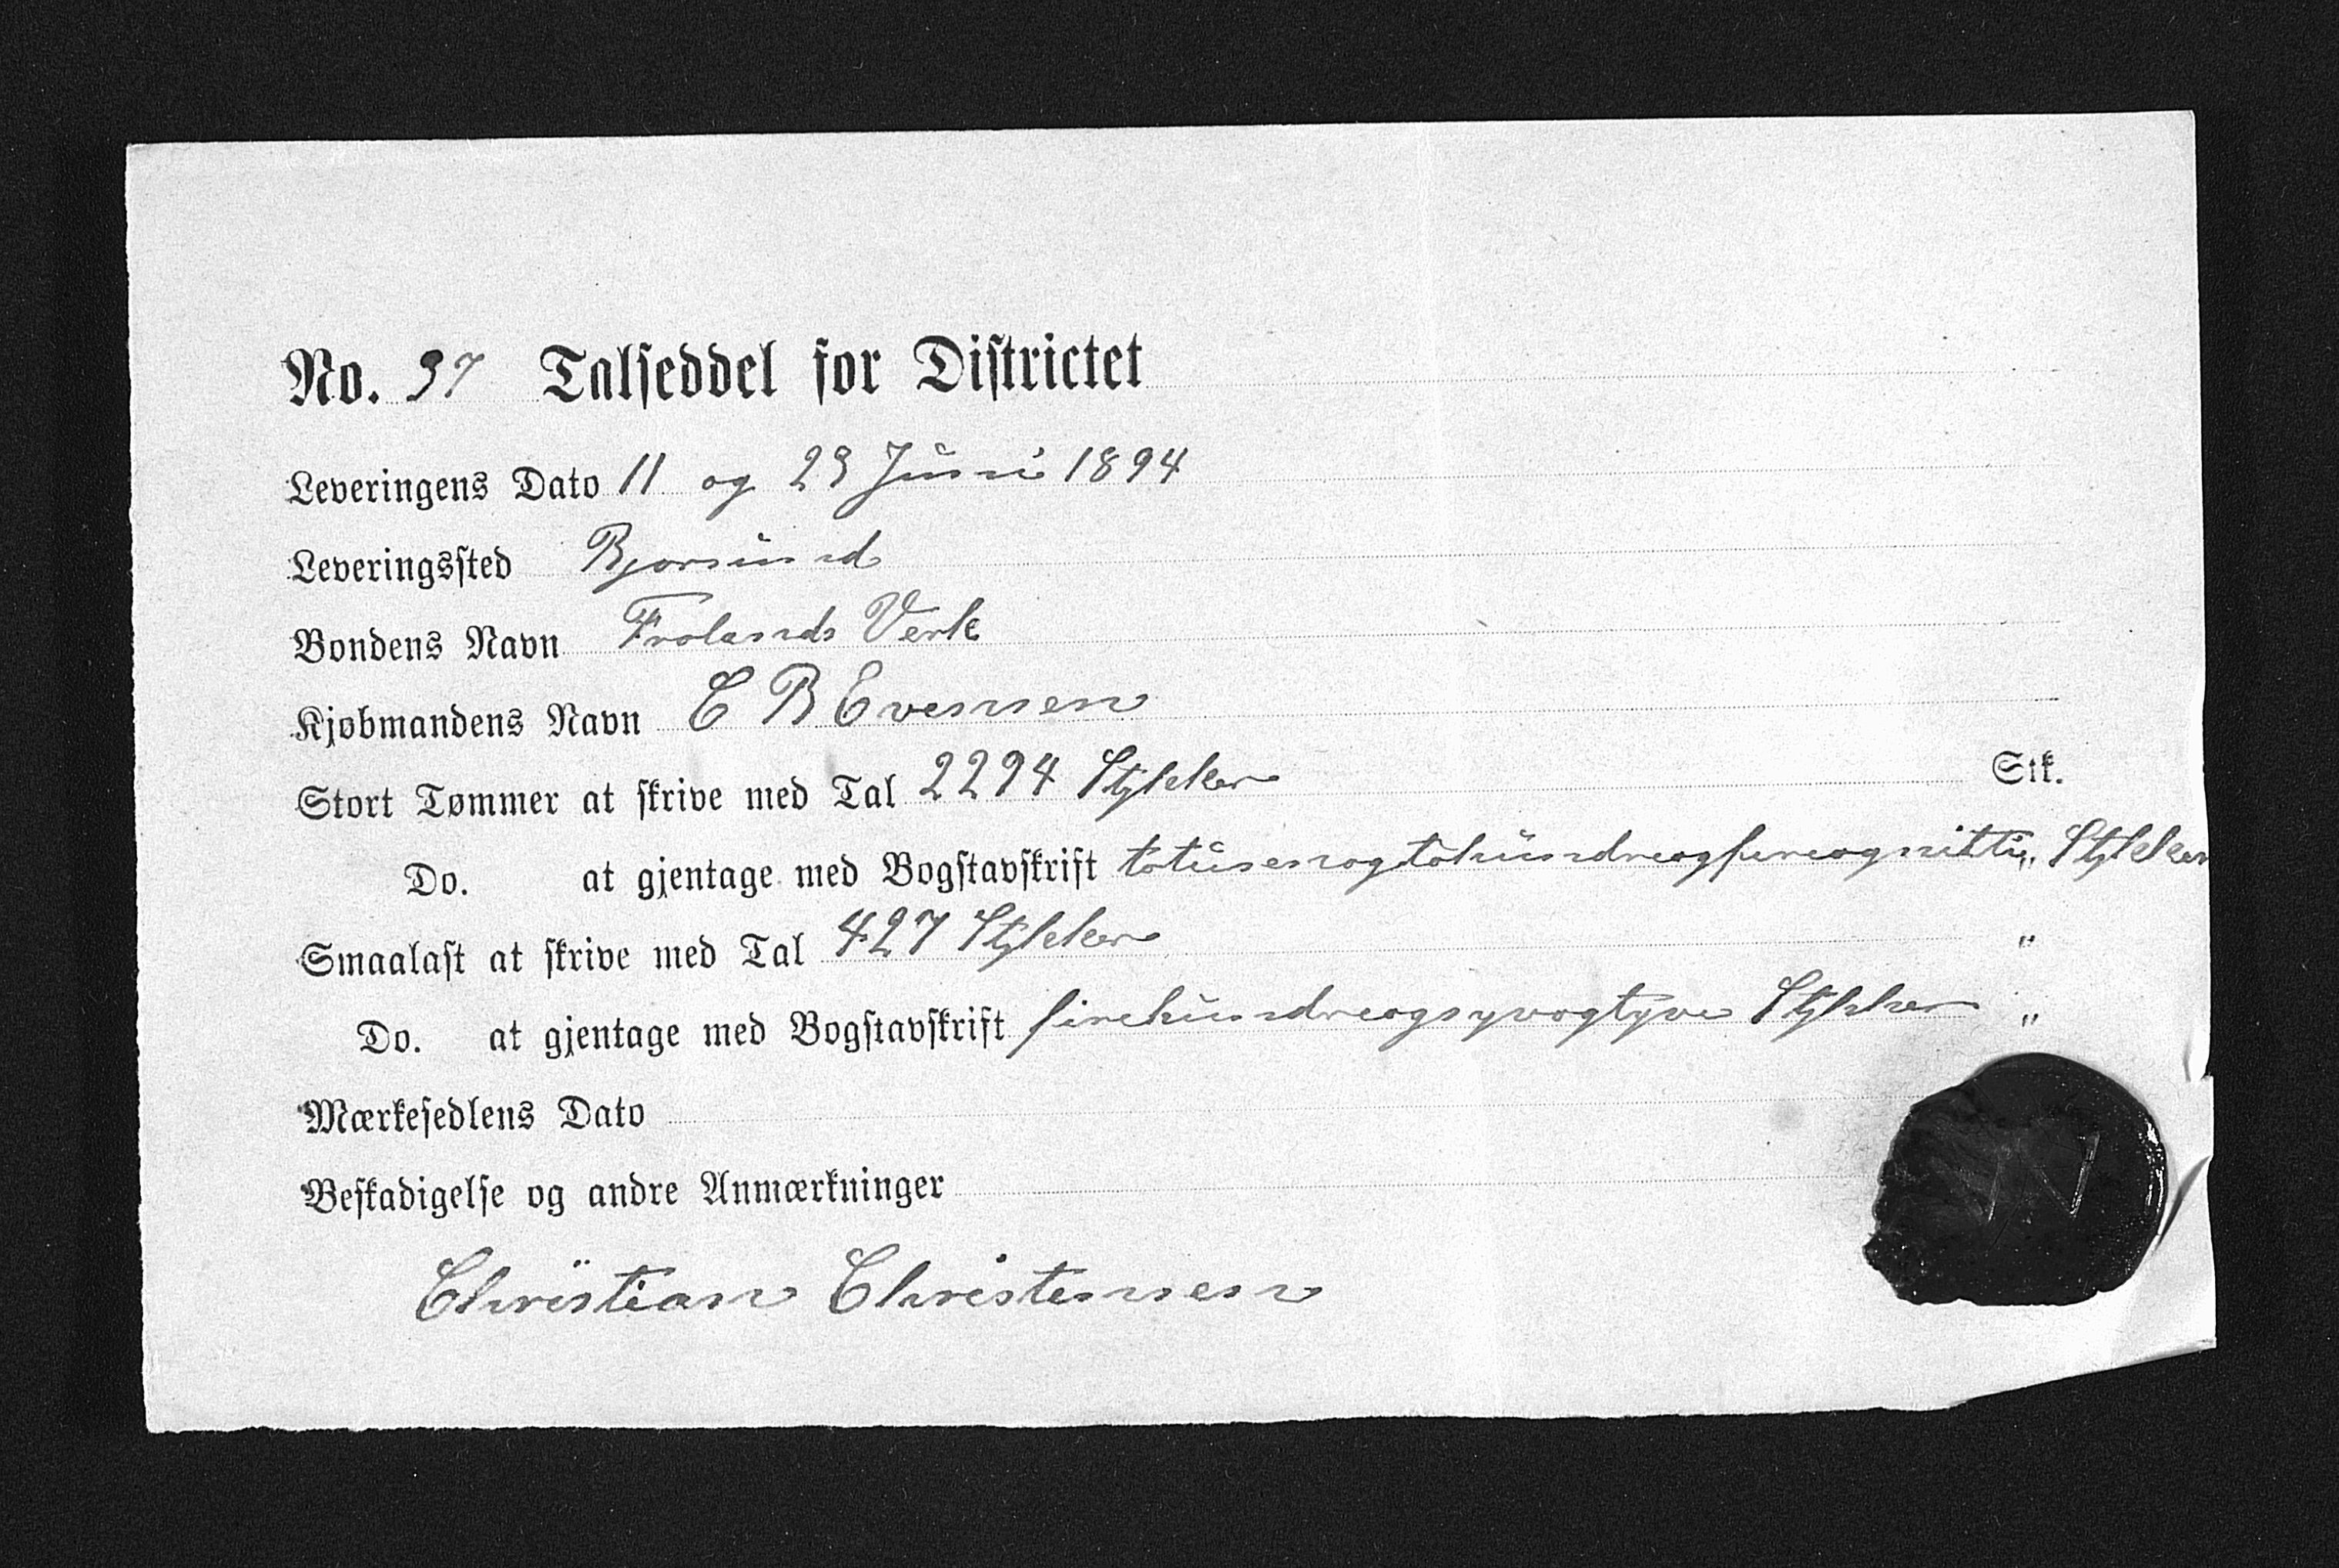 No. 37 Talseddel for Districtet
Leveringens Dato 11 og 23 Juni 1894
Leveringssted Bjorsund
Bondens Navn Frolands Verk
Kjøbmandens Navn C B Evensen
Stort Tømmer at skrive med Tal 2294 Stykker Stk.
Do. at gjentage med Bogstavskrift totusenogtohundreogfireognitti „ Stykker
Smaalast at skrive med Tal 427 Stykker „
Do. at gjentage med Bogstavskrift firehundreogsyvogtyve Stykker „
Mærkesedlens Dato
Beskadigelse og andre Anmærkninger
Christian Christensen